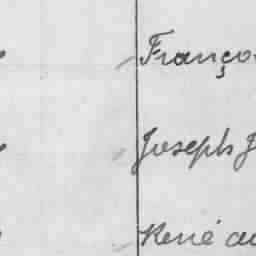 Franço
Joseph J
René au